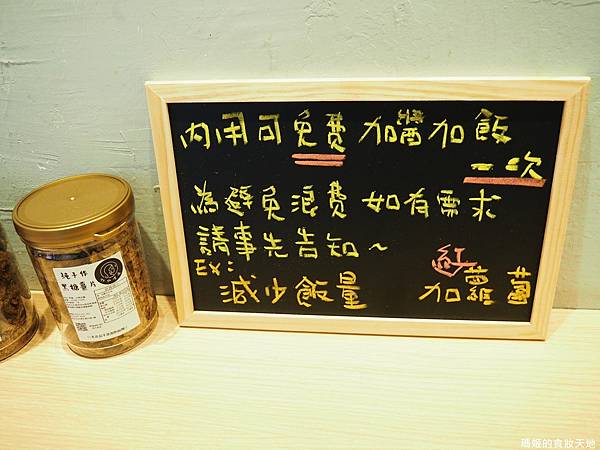 內用可免費加醬加飯
一次
為避免浪費 如有需求
請事先告知~
Ex:
減少飯量
紅
加蘿蔔
純手作
黑糖薑片
瑪姬的食妝天地